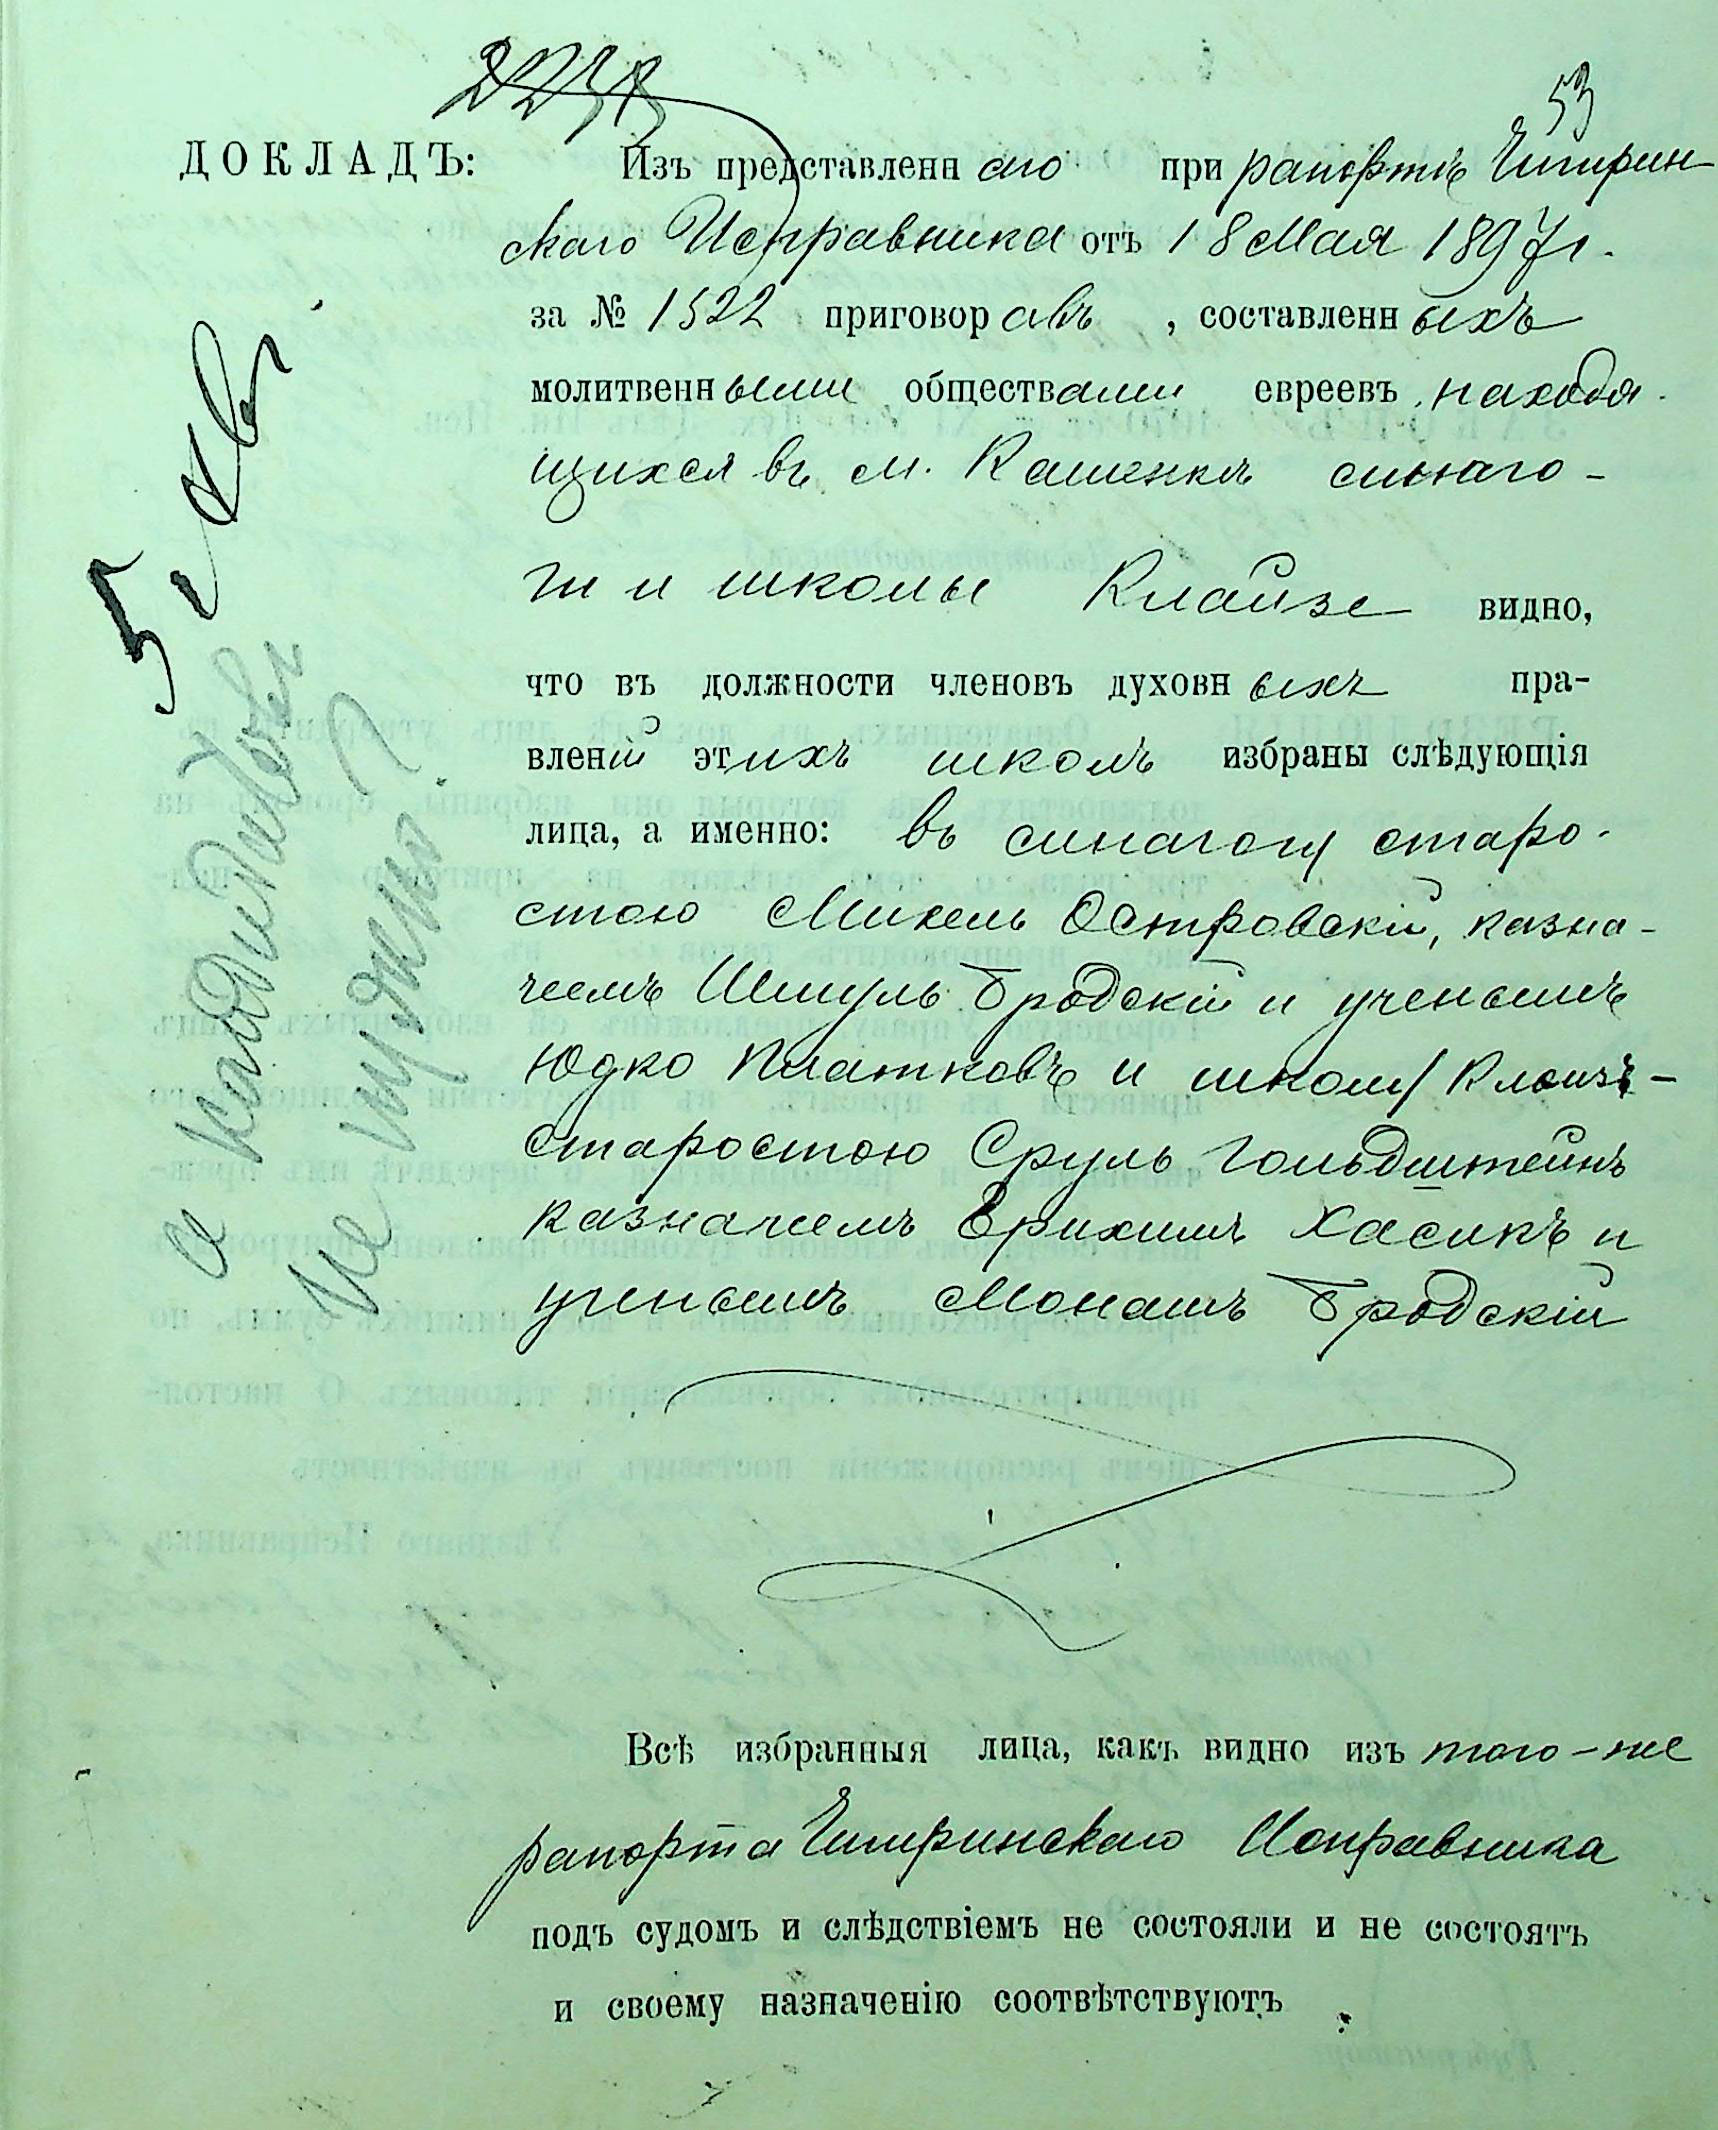 53
ДОКЛАДЪ: Изъ представленнаго при рапортѣ Чигирин-
скаго Исправника отъ 18 Мая 1897 г.
за № 1522 приговоровъ, составленныхъ
молитвенными обществами евреевъ находя-
щихся въ м. Каменкѣ синаго-
ги и школы Клайзе видно,
что въ должности членовъ духовныхъ пра-
вленій этихъ школъ избраны слѣдующія
лица, а именно: въ синагогу старо-
стою Михель Островскій, казна-
чеемъ Шмуль Бродскій и ученымъ
Юдко Платковъ и школу Клаизъ-
старостою Сруль Гольдштейнъ
казначеемъ Ерихимъ Хасикъ и
ученымъ Монашъ Бродскій
Всѣ избранныя лица, какъ видно изъ того-же
рапорта Чигиринскаго Исправника
подъ судомъ и слѣдствіемъ не состояли и не состоятъ
и своему назначенію соотвѣтствуютъ.
5
а кандидатовъ
не нужно?